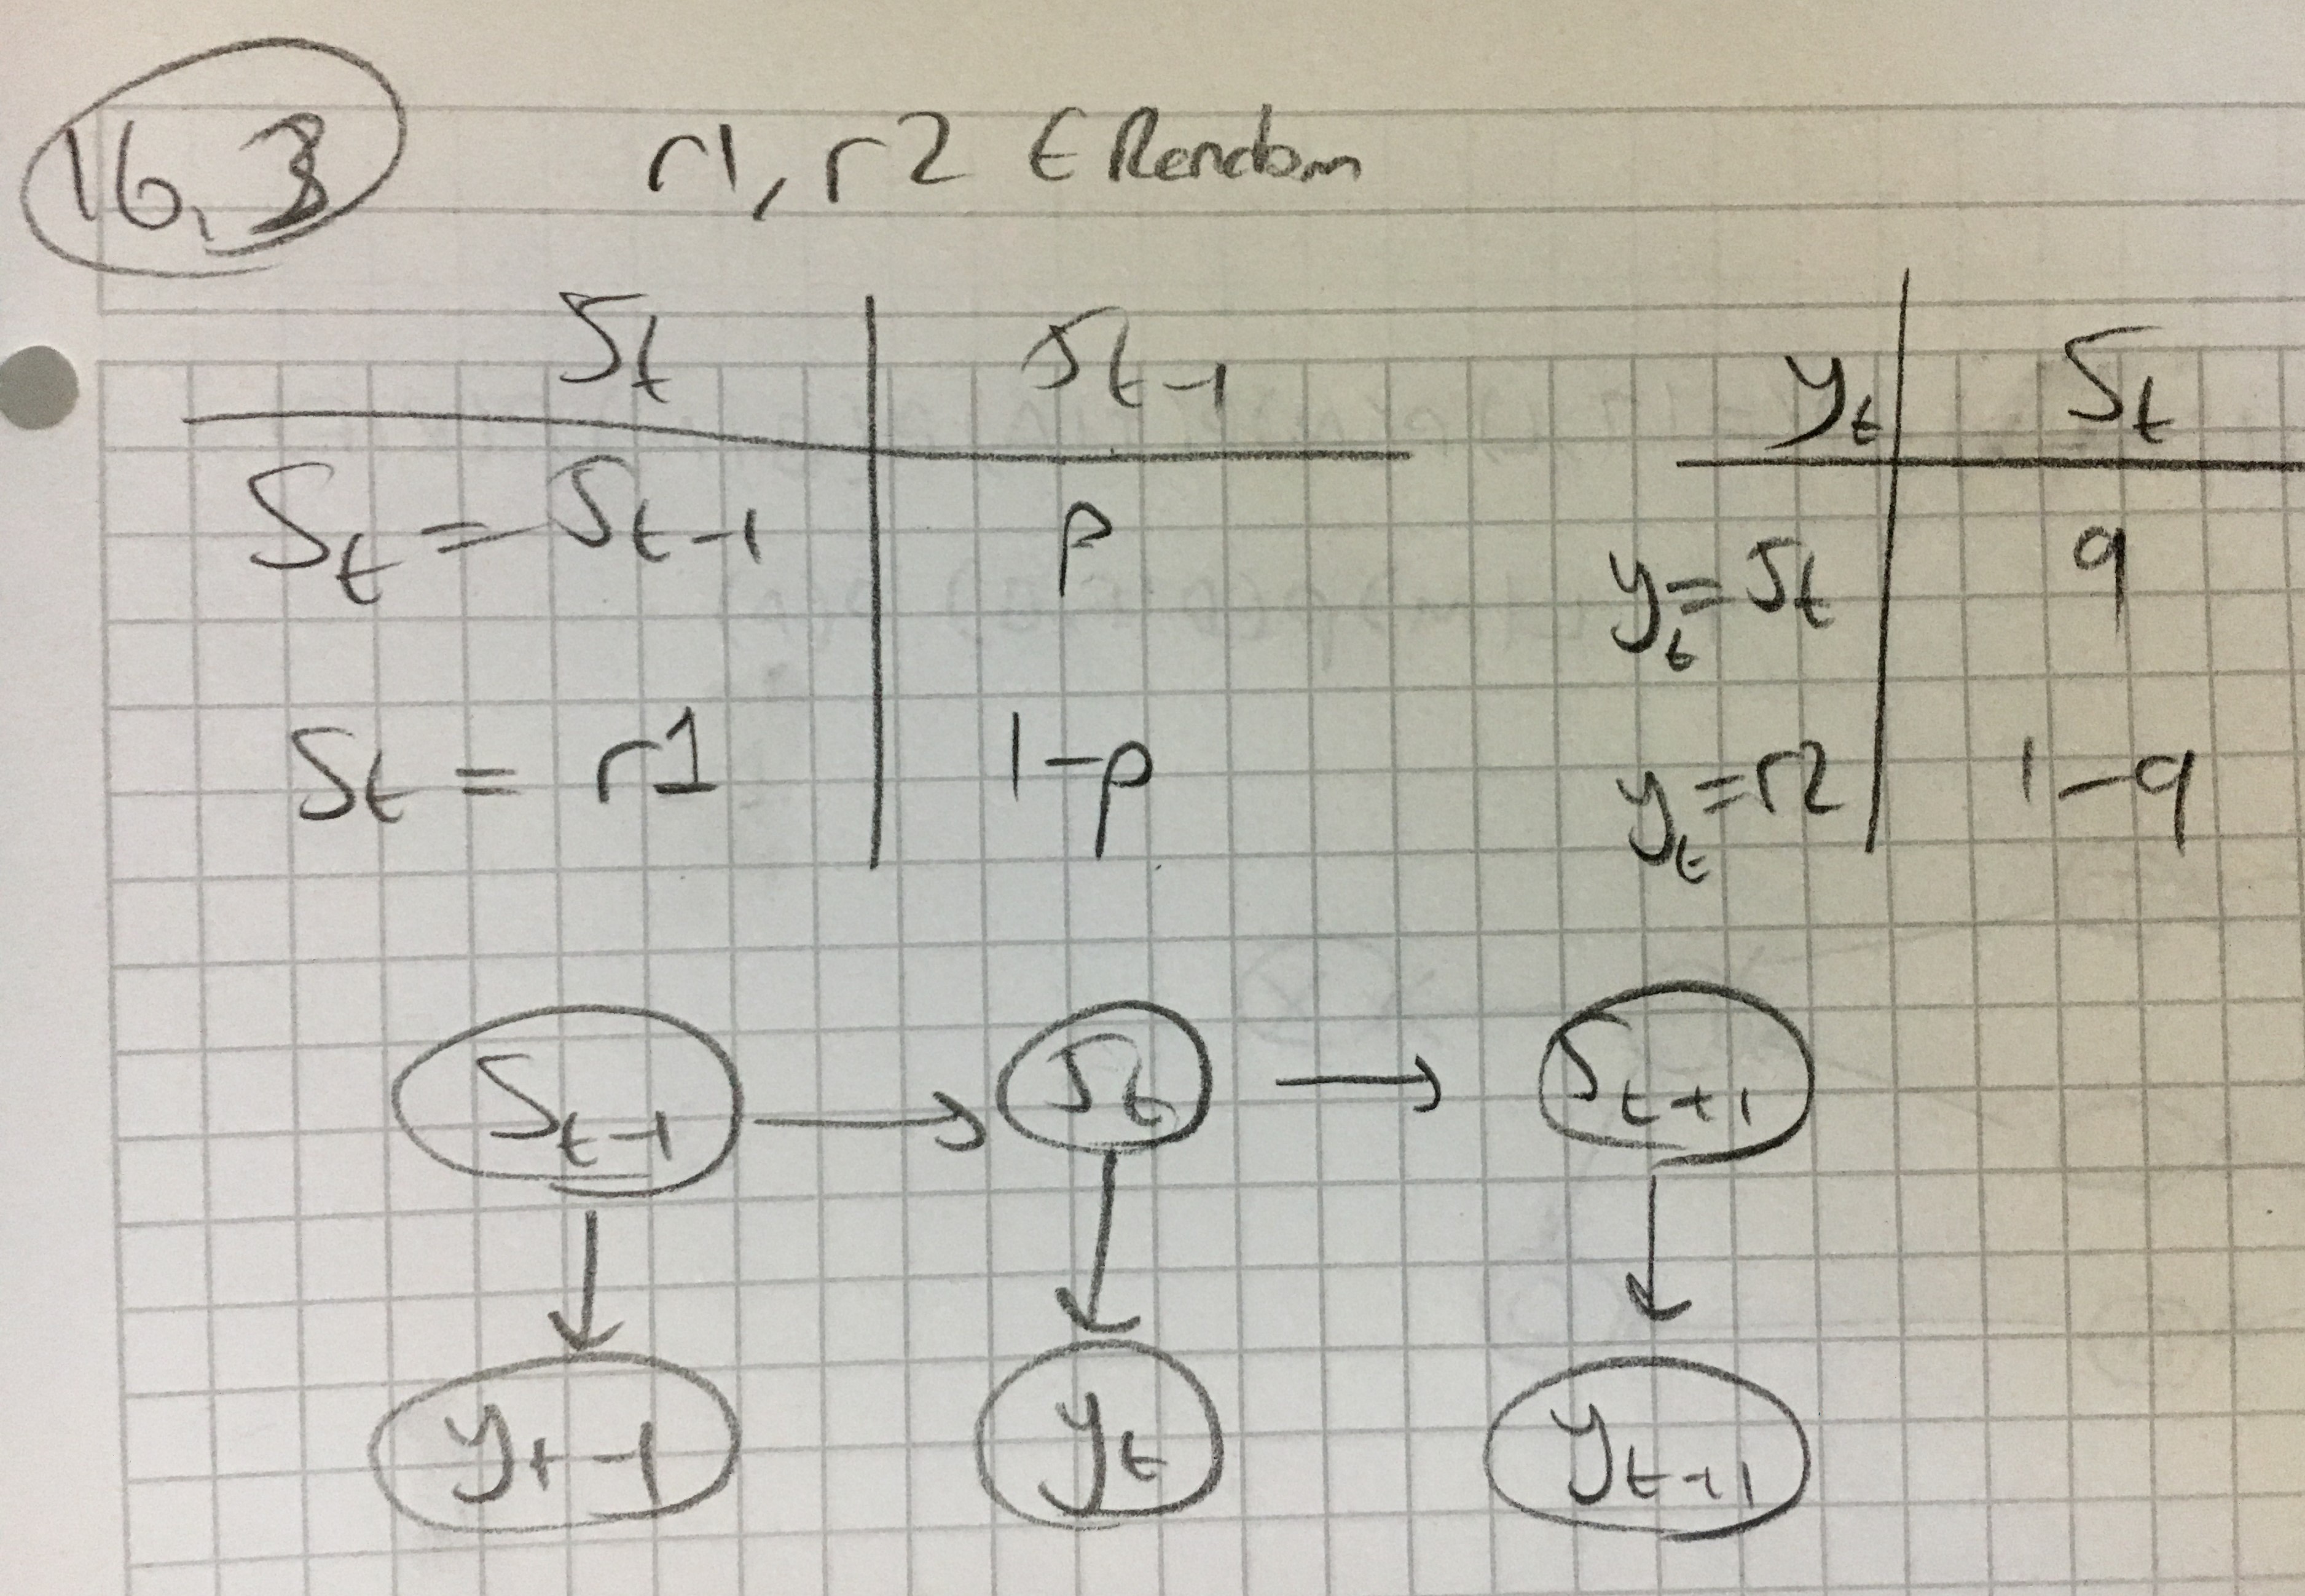 16.3 r1, r2 ∈ Random
St | St-1
St = St-1 | p
St = r1 | 1-p
yt | St
yt = St | q
yt = r2 | 1-q
St-1 → St → St+1
↓ ↓ ↓
yt-1 yt yt+1